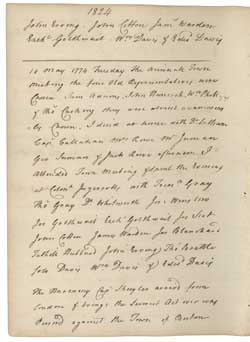 1824
John Erving John Cotton Jams Warden
Ezekl Goldthwait Wm Davis & Edwd Davis
10 May 1774 Tuesday The Annivers Town
Meeting the four Old Representatives were
Chosen Sam Adams, John Hancock, Wm Phillips
& Thos Cushing they were almost unanimous
by Chosen. I dined at house with Dr Latham
Cap Callahan Mrs Rowe Mr Inman
Geo Inman & Jack Rowe afternoon I
Attended Town Meeting & spent the Evening
at Colonl Ingersolls with Treasr Gray
Thos Gray Dr Whitworth Jos Winslow
Jos Goldthwait Ezek Goldthwait Jos Scot
John Cotton James Warden Jos Blanchard
Tuthill Hubbard John Erving Thos Brattle
Solo Davis Wm Davis & Edwd Davis
The Harmony Cap Shayler arrived from
London & brings the Severest Act ever was
Penned against the Town of Boston